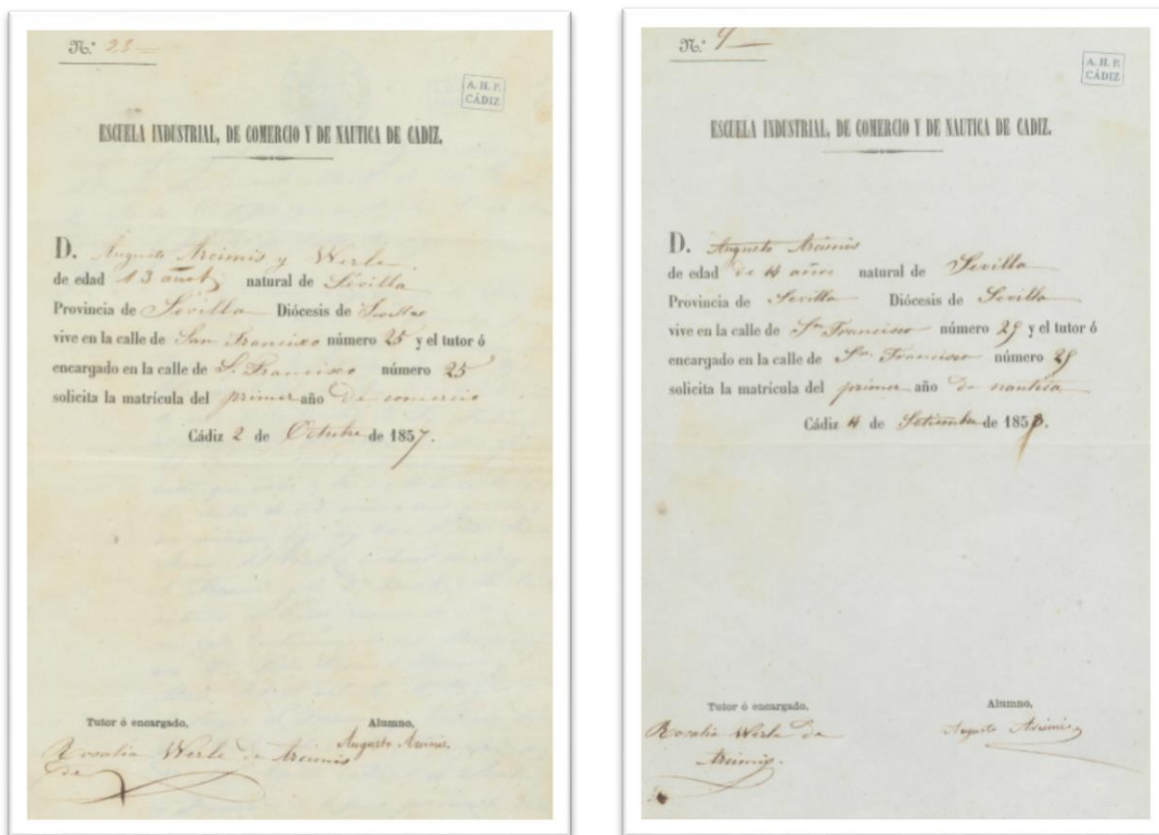 N.º 23
A. H. P.
CÁDIZ
ESCUELA INDUSTRIAL, DE COMERCIO Y DE NAUTICA DE CADIZ.
D. Augusto Arcimis y Werle
de edad 13 años natural de Sevilla
Provincia de Sevilla Diócesis de Sevilla
vive en la calle de San Francisco número 25 y el tutor ó
encargado en la calle de S. Francisco número 25
solicita la matrícula del primer año de comercio
Cádiz 2 de Octubre de 1857.
Tutor ó encargado,
Alumno,
Augusto Arcimis.
Rosalia Werle de Arcimis
N.º 9
A. H. P.
CÁDIZ
ESCUELA INDUSTRIAL, DE COMERCIO Y DE NAUTICA DE CADIZ.
D. Augusto Arcimis
de edad de 14 años natural de Sevilla
Provincia de Sevilla Diócesis de Sevilla
vive en la calle de Sn Francisco número 29 y el tutor ó
encargado en la calle de Sn Francisco número 29
solicita la matrícula del primer año de nautica
Cádiz 14 de Setiembre de 1858.
Tutor ó encargado,
Alumno,
Rosalia Werle de
Arcimis.
Augusto Arcimis